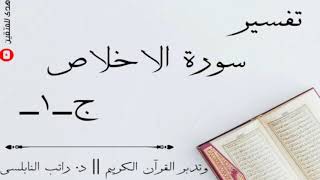 تفسير
سورة الاخلاص
ج_١_
وتدبر القرآن الكريم || د. راتب النابلسي
هدى للمتقين